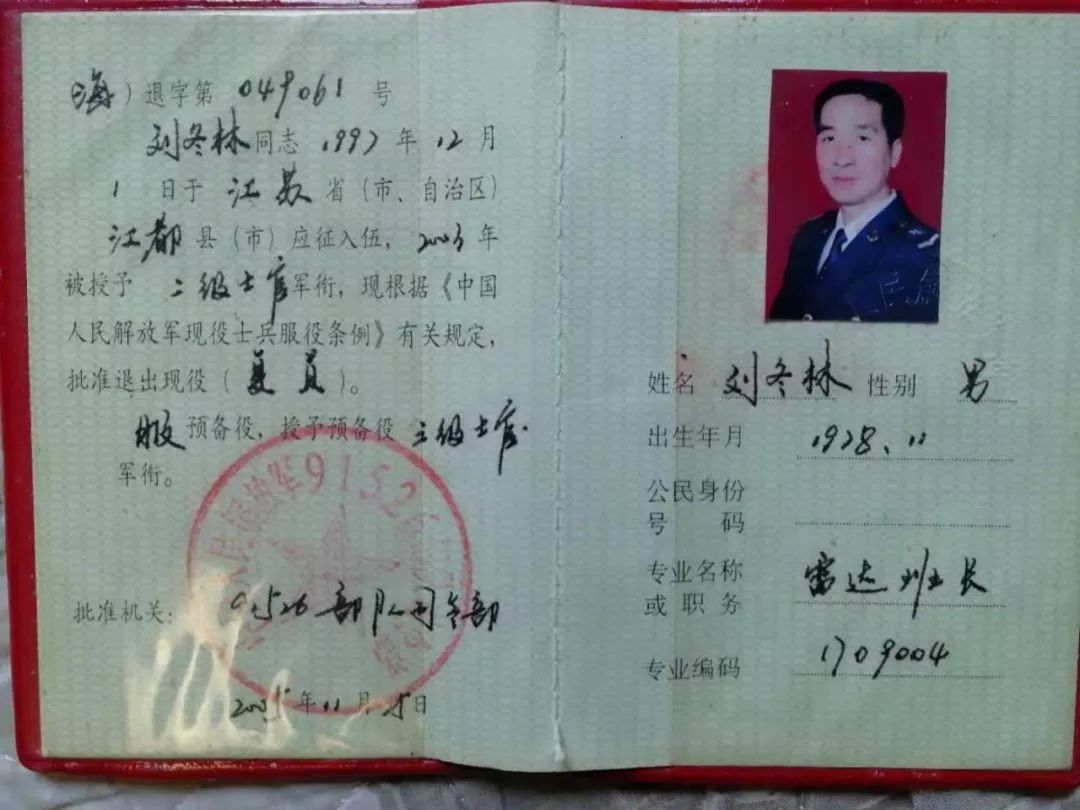 （海）退字第 049061 号
刘冬林同志 1997 年 12 月
1 日于 江苏 省（市、自治区）
江都 县（市）应征入伍，2003 年
被授予 二级士官 军衔，现根据《中国
人民解放军现役士兵服役条例》有关规定，
批准退出现役（复员）。
服 预备役，授予预备役 二级士官
军衔。
批准机关：91526部队司令部
2005年11月25日
姓名 刘冬林 性别 男
出生年月 1978.11
公民身份
号 码
专业名称 雷达班长
或 职 务
专业编码 1709004